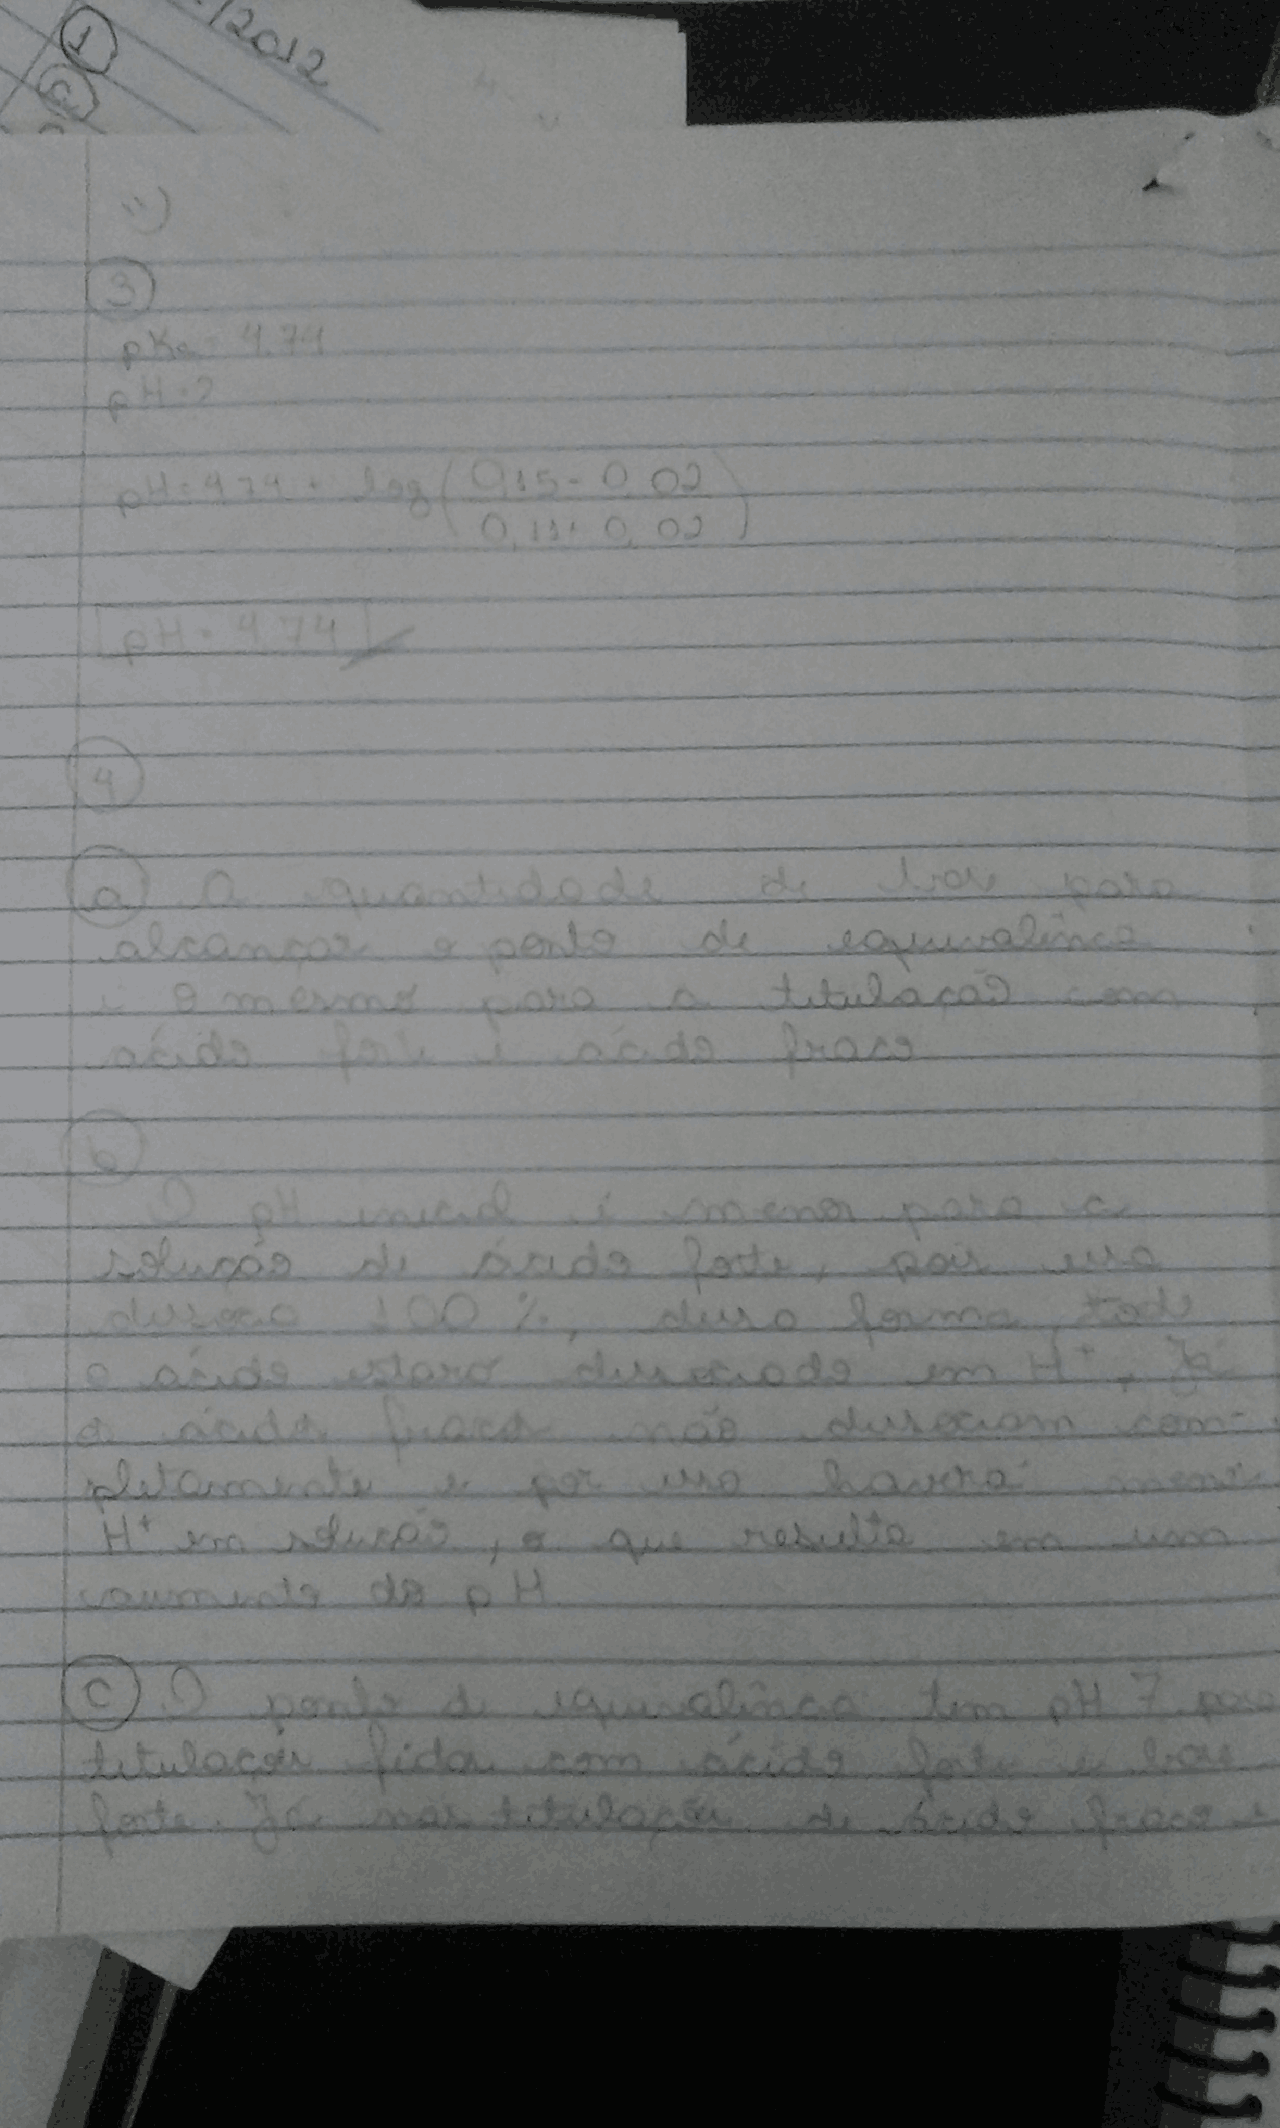 /2012
1
11)
3
pKa = 4.74
pH = ?
pH = 4.74 + log (0,15 - 0,02
0,11 + 0,02)
pH = 4.74
4
a) A quantidade de base para
alcançar o ponto de equivalência
é a mesma para a titulação com
ácido forte e ácido fraco
b
O pH inicial é menor para a
solução de ácido forte, pois essa
dissocia 100 %, dessa forma todo
o ácido estará dissociado em H⁺. Já
o ácidos fracos não dissociam com-
pletamente e por isso haverá menos
H⁺ em solução, o que resulta em um
aumento do pH
c) O ponto de equivalência tem pH 7 para
titulação com ácido forte e base
forte. Já nas titulações de ácido fraco e